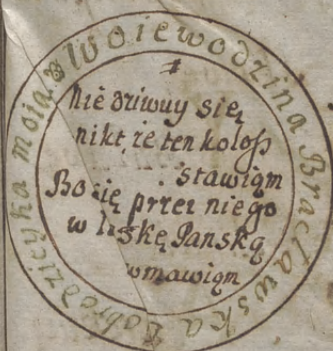 Woiewodzina Bracławska Dobrodzicyka moia
Nie dziwuy się
nikt, że ten koloſs
stawiąm
Bo się przez niego
w łaskę Panską
wmawiąm